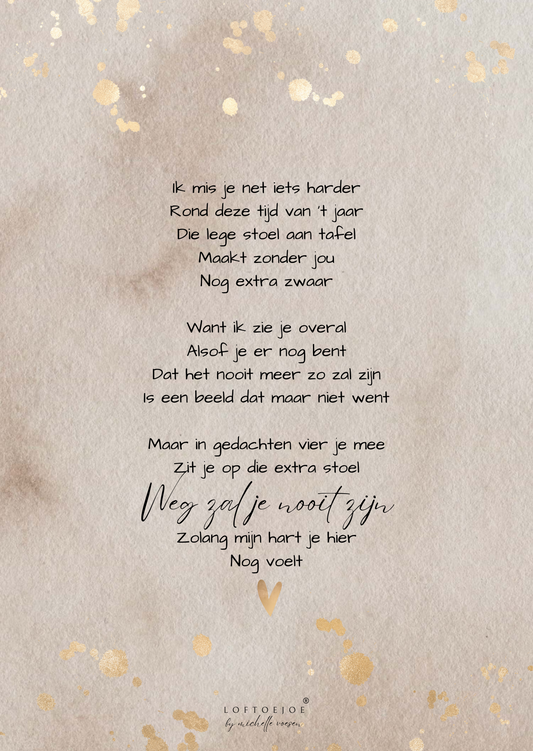 Ik mis je net iets harder
Rond deze tijd van 't jaar
Die lege stoel aan tafel
Maakt zonder jou
Nog extra zwaar
Want ik zie je overal
Alsof je er nog bent
Dat het nooit meer zo zal zijn
Is een beeld dat maar niet went
Maar in gedachten vier je mee
Zit je op die extra stoel
Weg zal je nooit zijn
Zolang mijn hart je hier
Nog voelt
LOFTOEJOE®
by michelle voesen